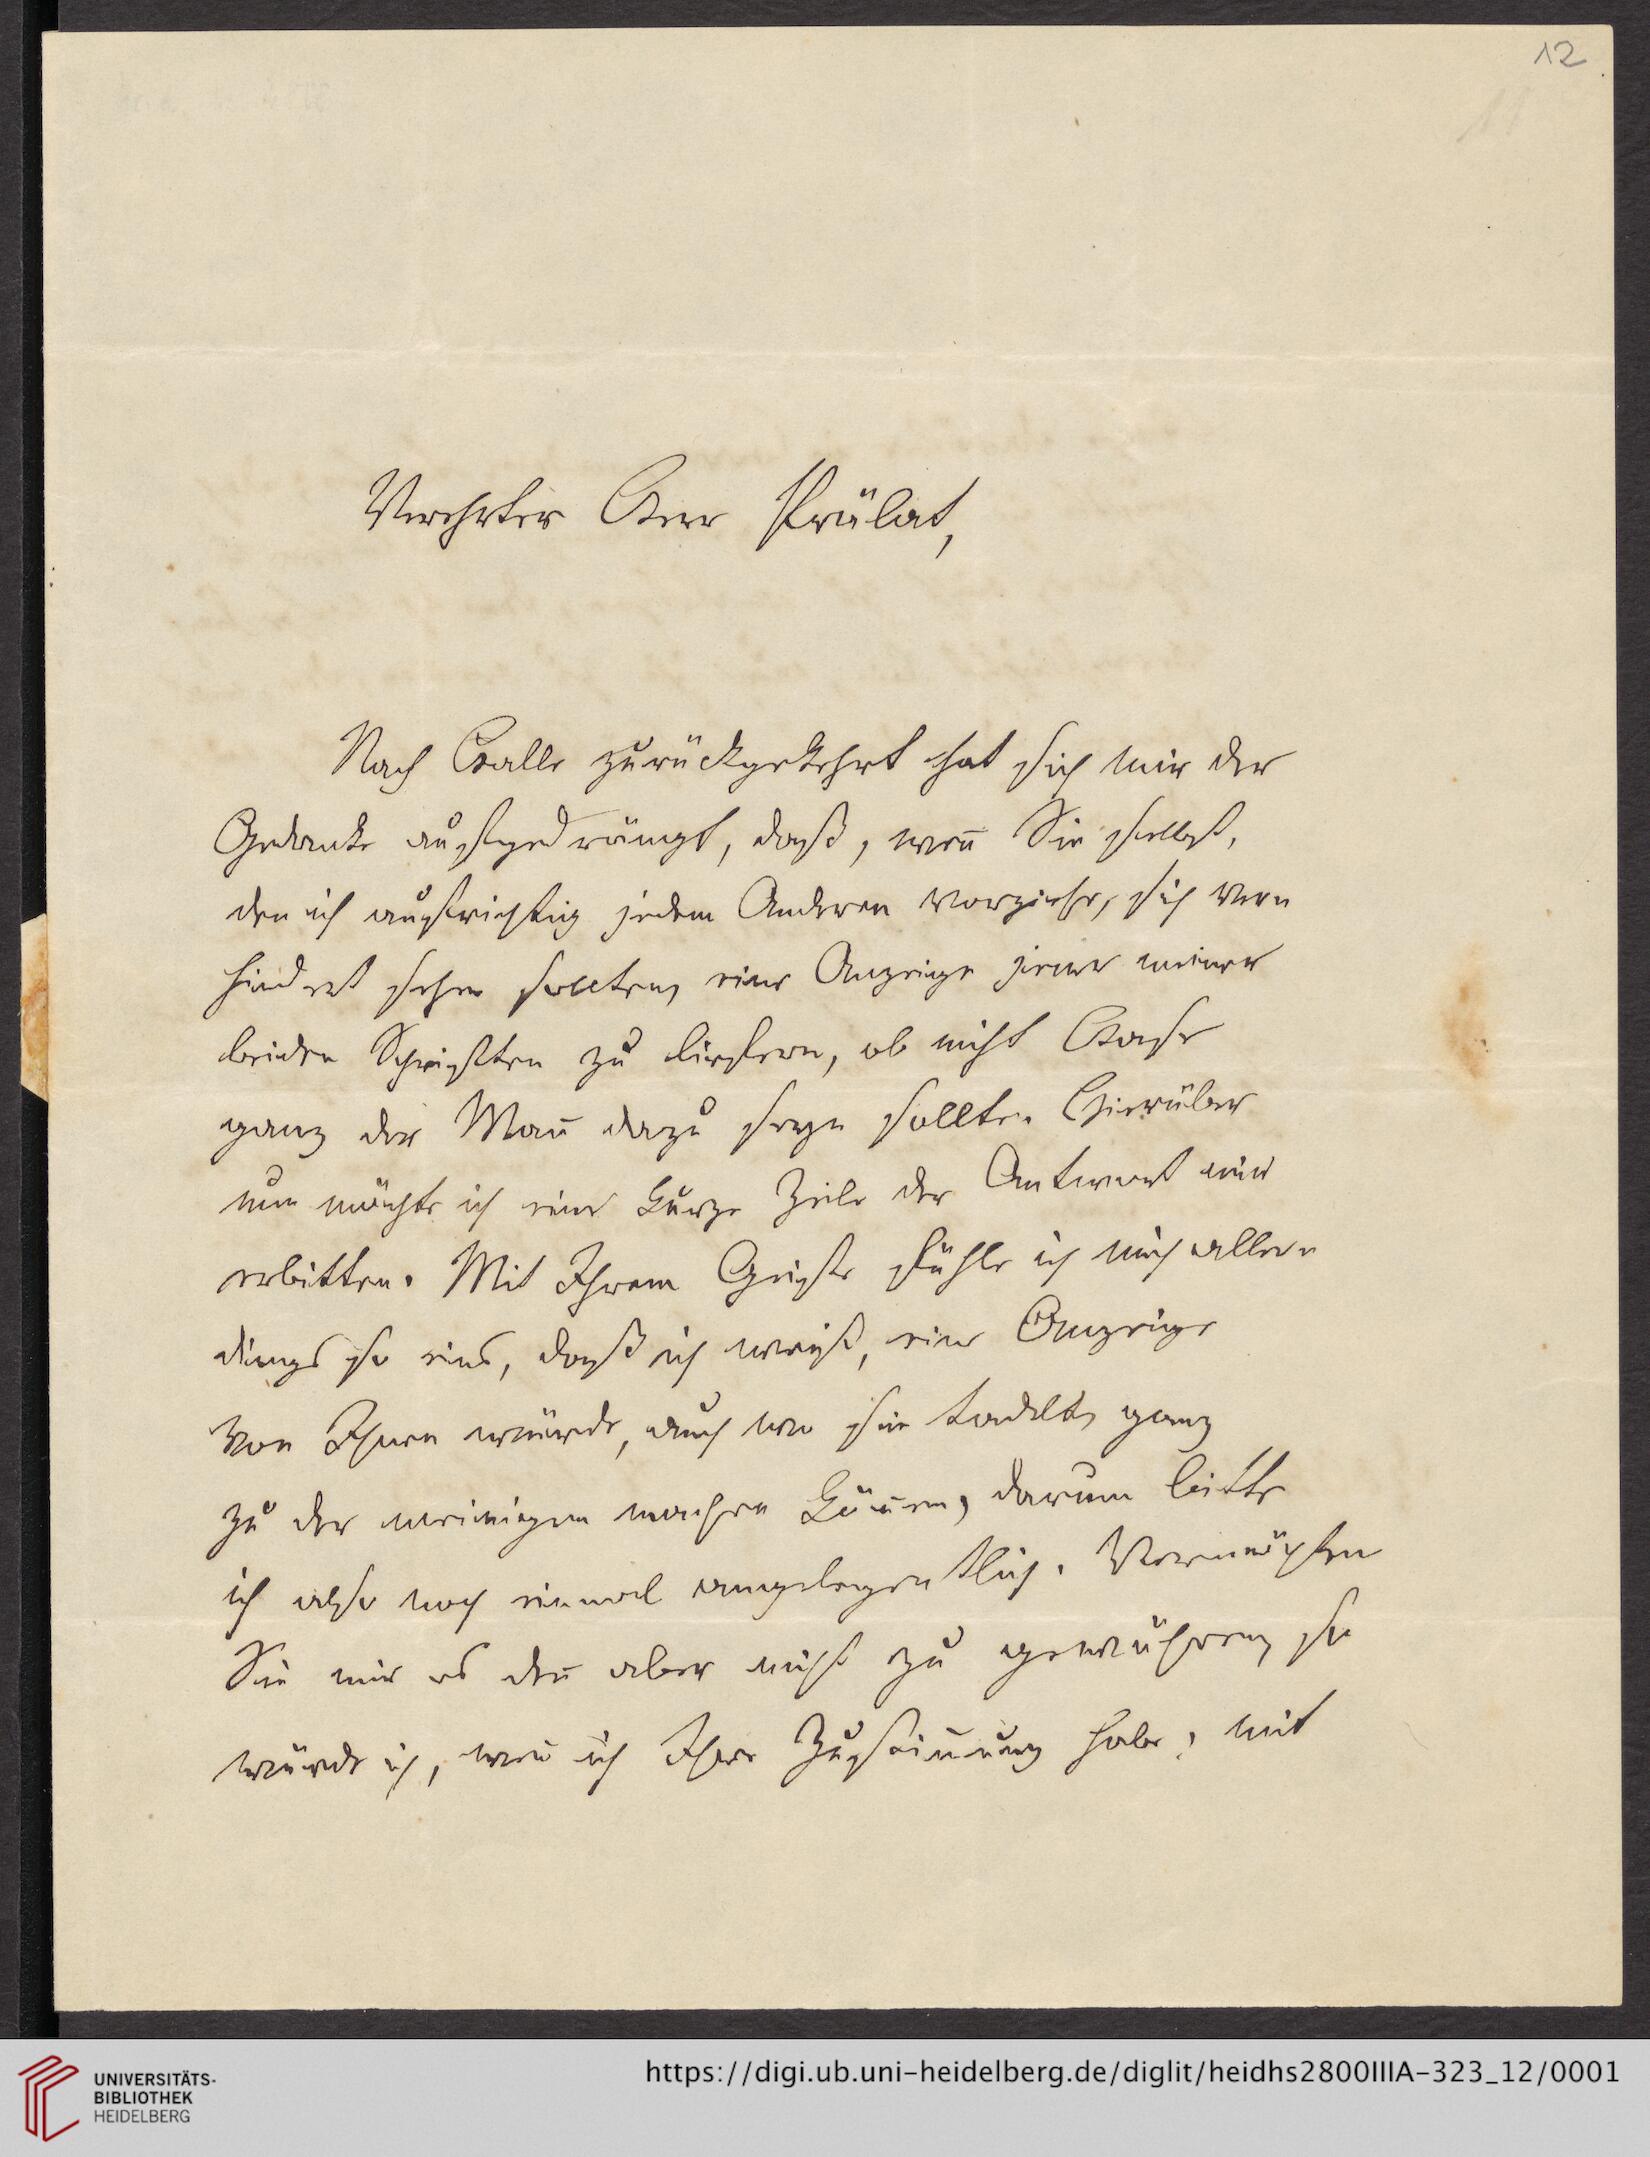 12
Verehrter Herr Prälat,
Nach Halle zurückgekehrt hat sich mir der
Gedanke aufgedrängt, daß, weñ Sie selbst,
den ich aufrichtig jedem Anderen vorziehe, sich ver-
hindert sehen sollten, eine Anzeige jener meiner
beiden Schriften zu liefern, ob nicht Hase
ganz der Mañ dazu seyn sollte. Hierüber
nun möchte ich eine kurze Zeile der Antwort mir
erbitten. Mit Ihrem Geiste fühle ich mich aller-
dings so eins, daß ich weiß, eine Anzeige
von Ihnen würde, auch wo sie tadelt, ganz
zu der meinigen machen köñen, darum bitte
ich also noch einmal angelegentlich. Vermöchten
Sie mir es deñ aber nicht zu gewähren, so
würde ich, weñ ich Ihre Zustim̄ung habe, mit
UNIVERSITÄTS-
BIBLIOTHEK
HEIDELBERG
https://digi.ub.uni-heidelberg.de/diglit/heidhs2800IIIA-323_12/0001